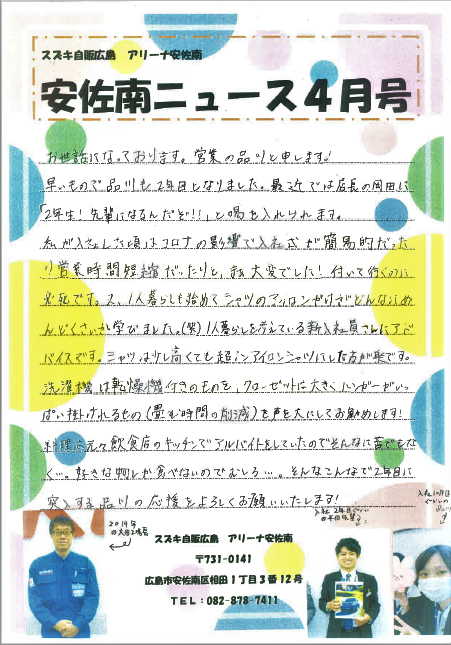 スズキ自販広島 アリーナ安佐南
安佐南ニュース4月号
お世話になっております。営業の品川と申します!
早いもので品川も2年目となりました。最近では店長の岡田に
「2年生!先輩になるんだぞ!!」と喝を入れられます。
私が入社した頃はコロナの影響で入社式が簡易的だった
り営業時間短縮だったりと、まあ大変でした!付いて行くのに
必死です。又、1人暮らしも始めてシャツのアイロンがけがどんなにめ
んどくさいか学びました。(笑)1人暮らしを考えている新入社員さんにアド
バイスです。シャツは少し高くても超ノンアイロンシャツにした方が楽です。
洗濯機は乾燥機付きのものを、クローゼットは大きくハンガーがいっ
ぱい掛けれるもの(畳む時間の削減)を声を大にしてお勧めします!
料理は元々飲食店のキッチンでアルバイトをしていたのでそんなに苦でもな
く…。好きな物しか食べないのでむしろ…。そんなこんなで2年目に
突入する品川の応援をよろしくお願いいたします!
2019年
入社2年目
スズキ自販広島 アリーナ安佐南
〒731-0141
広島市安佐南区相田1丁目3番12号
TEL:082-878-7411